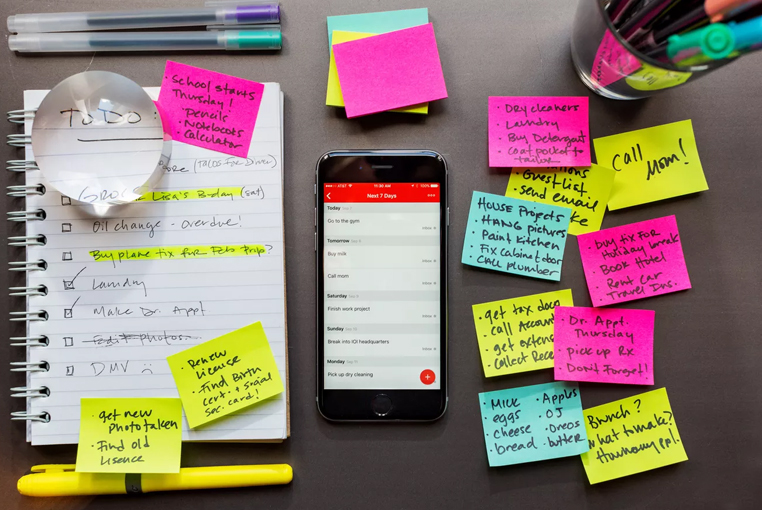 TO DO:
(TACOS FOR DINNER)
Lisa's B-day (sat)
Oil change - overdue!
Buy plane tix for Feb trip?
Laundry
Make Dr. Appt.
edit photos
DMV
• School starts
Thursday!
• Pencils
• Notebooks
• Calculator
• Renew
License
• Find Birth
cert. + social
sec. card!
• get new
photo taken
• Find old
Lisence
AT&T
11:56 AM
100%
Next 7 Days
Today
Go to the gym
Inbox
Tomorrow
Buy milk
Inbox
Call mom
Inbox
Saturday
Finish work project
Inbox
Sunday
Break into IQI headquarters
Inbox
Monday
Pick up dry cleaning
• Dry cleaners
• Laundry
• Buy Detergent
• Coat pocket to
tailor
Call
Mom!
• Guest List
• send email
House Projects
• Hang pictures
• Paint Kitchen
• Fix cabinet door
• Call plumber
• Buy tix for
Holiday break
• Book Hotel
• Rent Car
• Travel Ins.
• get tax docs
• call Account
• get extens
• Collect Rece
• Dr. Appt.
Thursday
• pick up Rx
• Don't Forget!
• Milk • Apples
• eggs • OJ
• cheese • Oreos
• bread • butter
Brunch?
What to make?